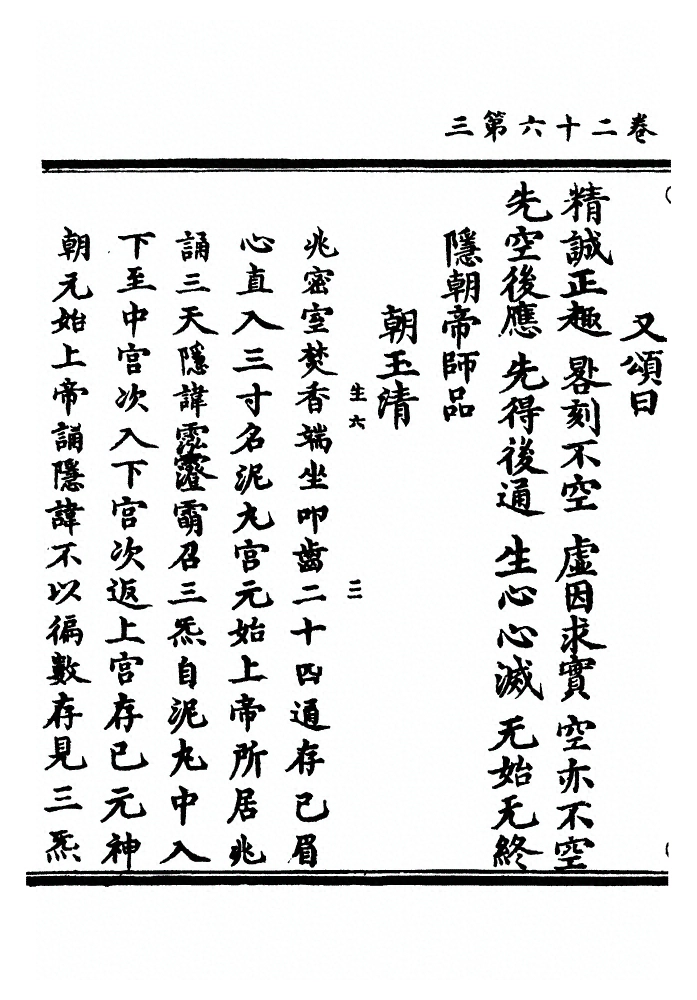 三第六十二卷
又頌曰
精誠正趣 晷刻不空 虛因求實 空亦不空
先空後應 先得後通 生心心滅 无始无終
隱朝帝師品
朝玉清
生六 三
兆密室焚香端坐叩齒二十四通存已眉
心直入三寸名泥丸宮元始上帝所居兆
誦三天隱諱霐霮霛召三炁自泥丸中入
下至中宮次入下宮次返上宮存已元神
朝元始上帝誦隱諱不以徧數存見三炁